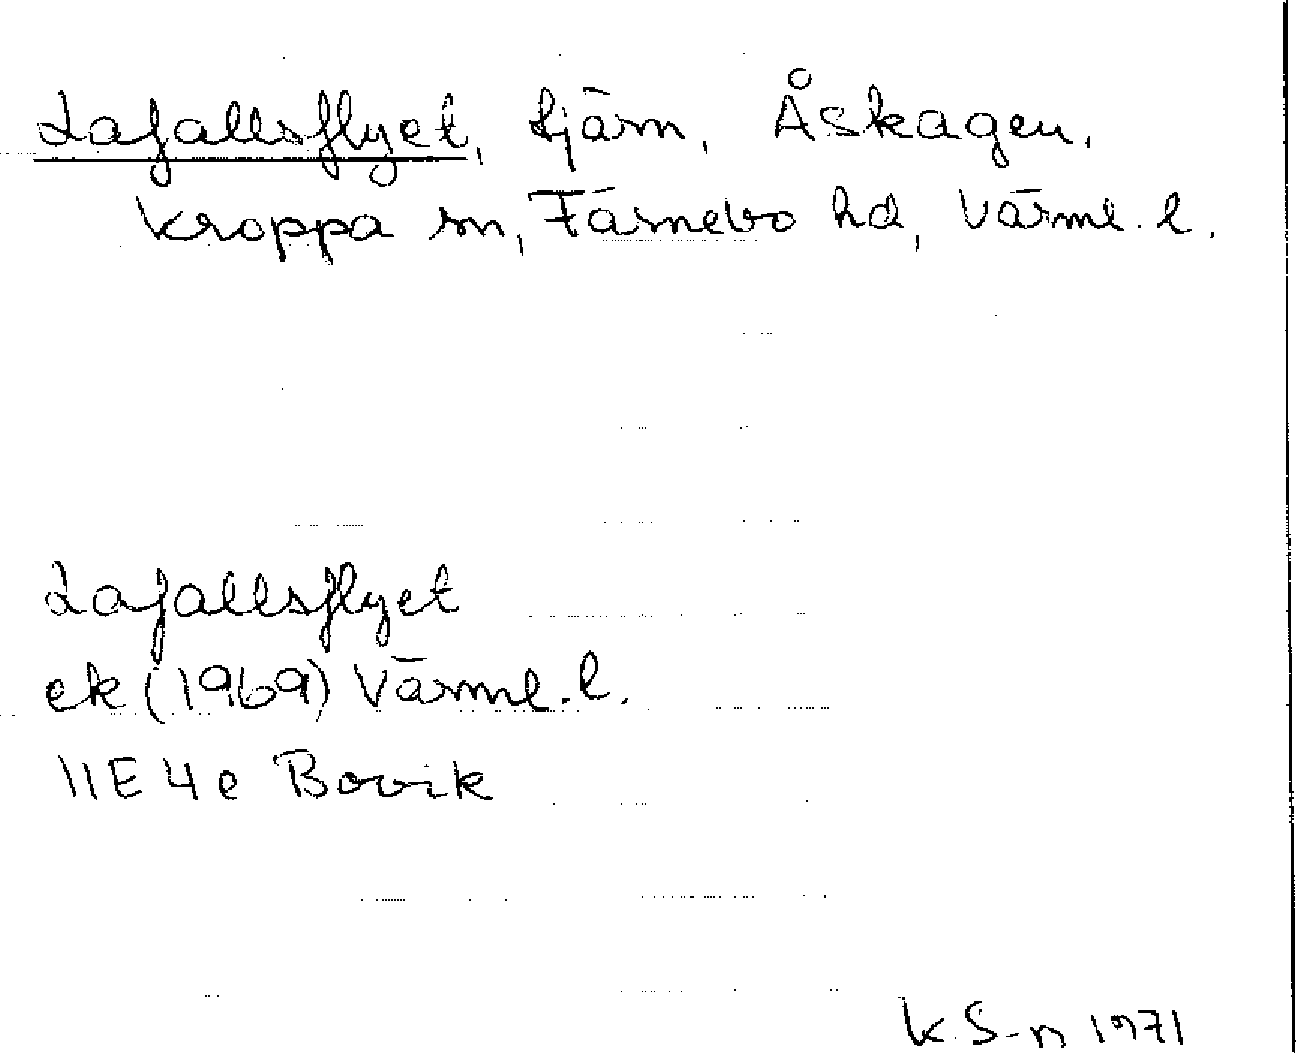 Lafallsflyet, tjärn, Åskagen,
Kroppa sn, Färnebo hd, Värml. l.
Lafallsflyet
ek (1969) Värml. l.
11E 4e Bovik
K. S-n 1971